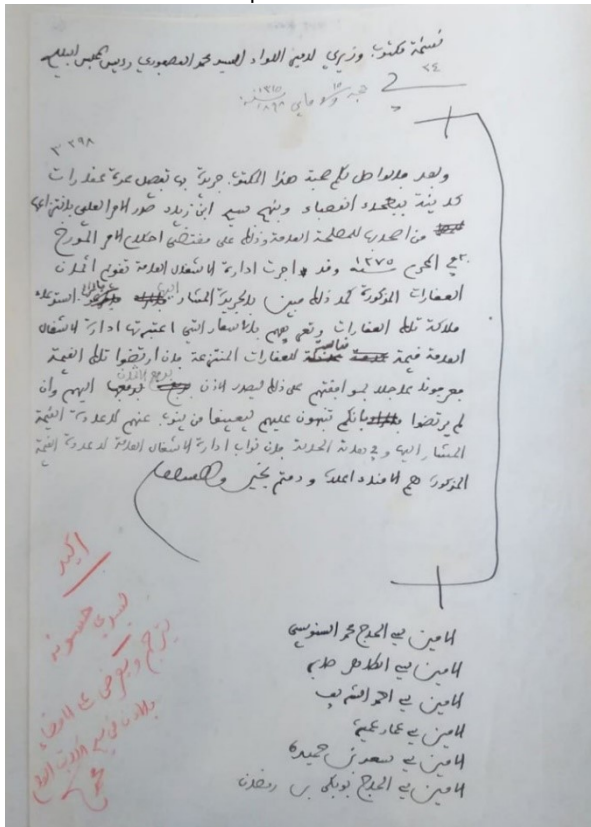 نسخة مكتوب وزيري لامير اللواء السيد محمد العصفوري رئيس المجلس البلدي
٢٤
في ١٥ ماي سنة ١٨٩٨
٣٢٩٨
وبعد فالواصل لكم صحبة هذا المكتوب جريدة بها تفصيل عدة عقارات
كاينة ببطحاء القصباء وبنهج سيدي ابن زياد صدر الامر العلي بانتزاعها
من اصحابها للمصلحة العامة وذلك على مقتضى احكام الامر المورخ
في المحرم سنة ١٢٧٥ وقد اجرت ادارة الاشغال العامة تقويم اثمان
العقارات المذكورة كما ذلك مبين بالجريدة المشار اليها استدعاء
ملاكة تلك العقارات وتعريفهم بالاسعار التي اعتبرتها ادارة الاشغال
العامة قيمة للعقارات المنتزعة فان ارتضوا تلك القيمة
عاجلا بموافقتهم على ذلك ليصدر الاذن بدفع الاثمان اليهم وان
لم يرتضوا فانكم تنبهون عليهم ليعينوا من ينوب عنهم لاعادة القيمة
المشار اليها وفي هاته الحالة فان نواب ادارة الاشغال العامة لاعادة القيمة
المذكورة هم الامناء اعلاه ودمتم بخير والسلام
اكيد
سيدي حسونة
يترجم ويعرض على الامضاء
الامين سي الحاج محمد السنوسي
الامين سي الطاهر
الامين سي احمد الشريف
الامين سي عمار
الامين سي سعد بن حميدة
الامين سي الحاج بوبكر بن رمضان